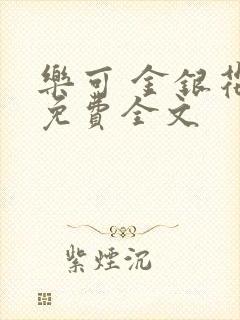 樂可 金銀花
免費全文
紫煙沉